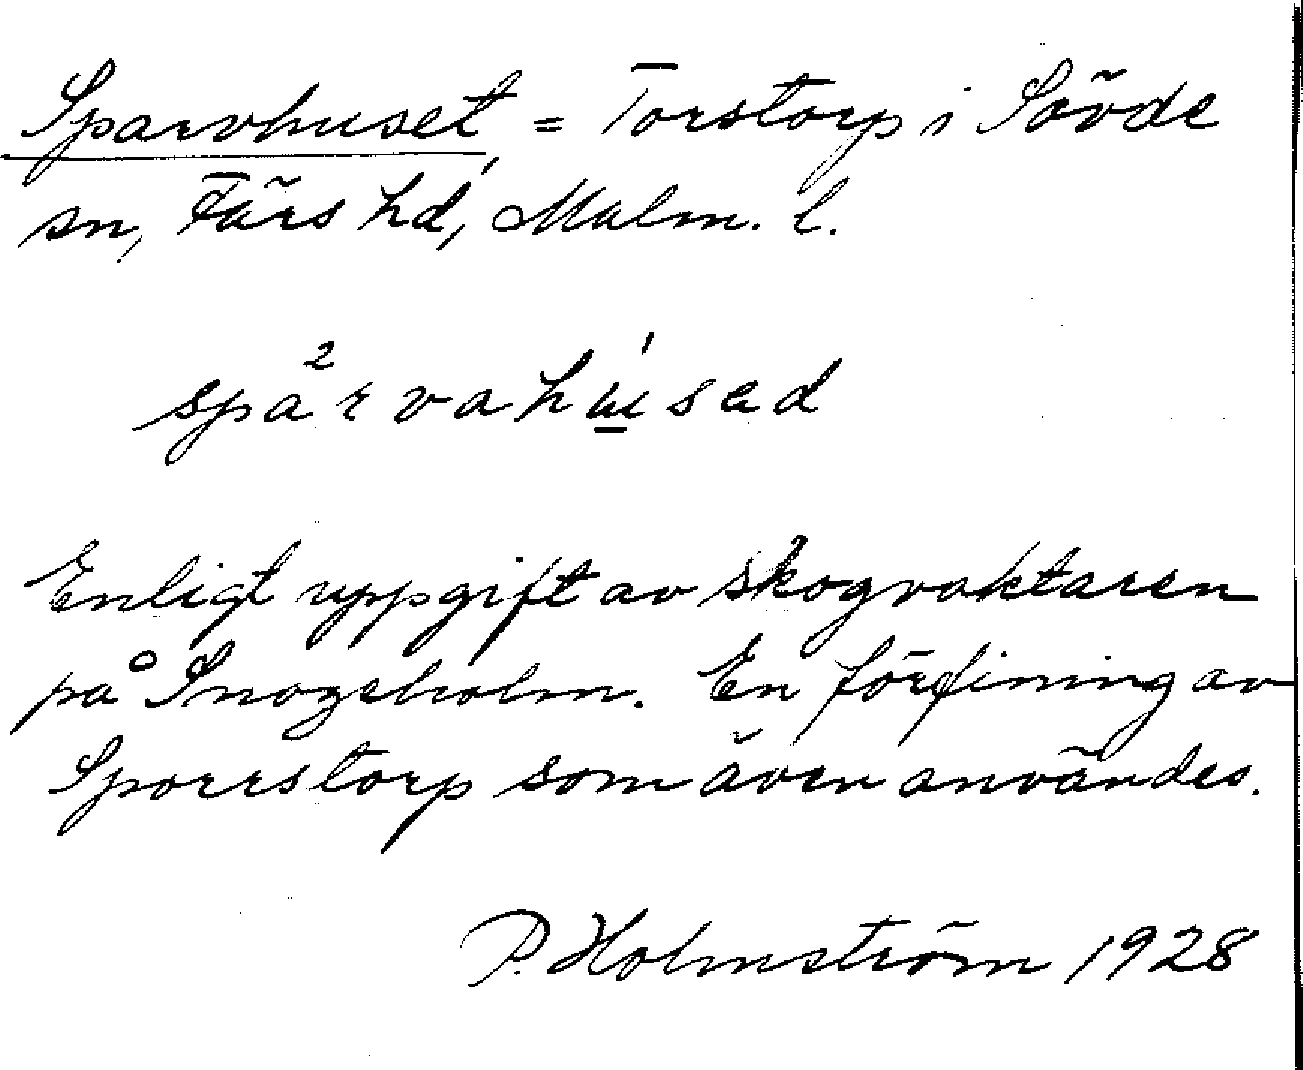 Sparvhuset, = Torstorp i Sövde
sn, Färs hd, Malm. l.
spa²rvahu̲'sad
Enligt uppgift av skogvaktaren
på Snogeholm. En förfining av
Sporrstorp som även användes.
P. Holmström 1928